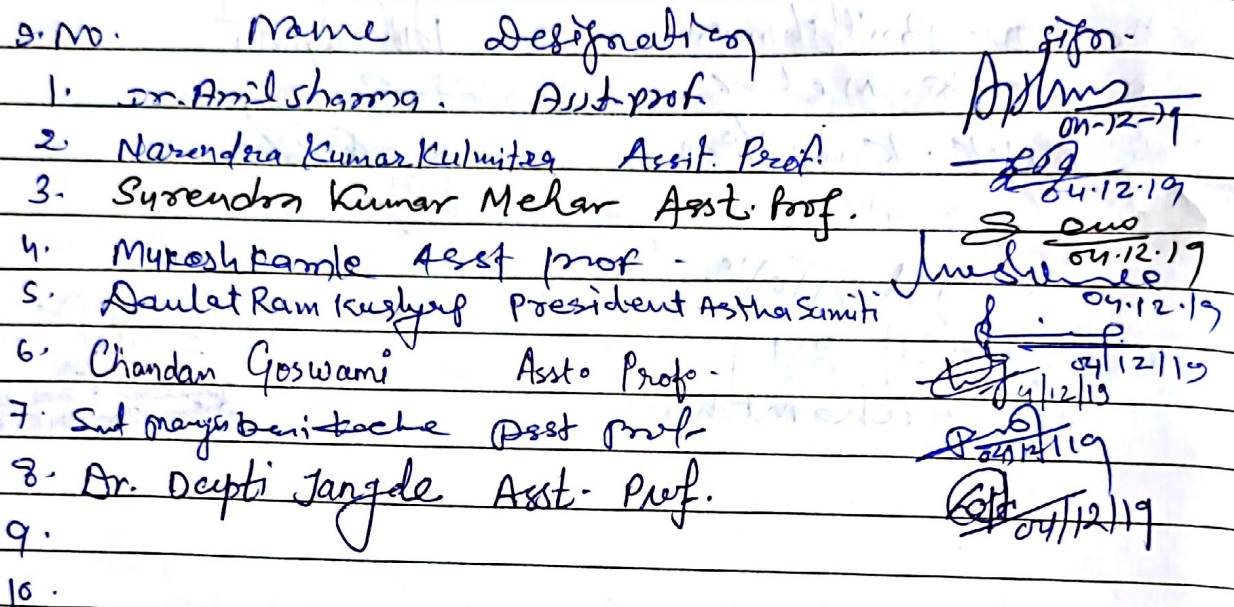 S.No. Name Designation Sign.
1. Dr. Anil Sharma. Asst prof. 04-12-19
2. Narendra Kumar Kulmitra Assit. Prof. 04.12.19
3. Surendra Kumar Mehar Asst. Prof. 04.12.19
4. Mukesh Kamle Asst prof - 04.12.19
5. Daulat Ram Kashyap President Astha Samiti 04/12/19
6. Chandan Goswami Asst. Prof. 4/12/19
7. Smt Asst prof 04/12/19
8. Dr. Deepti Jangde Asst. Prof. 04/12/19
9.
10.